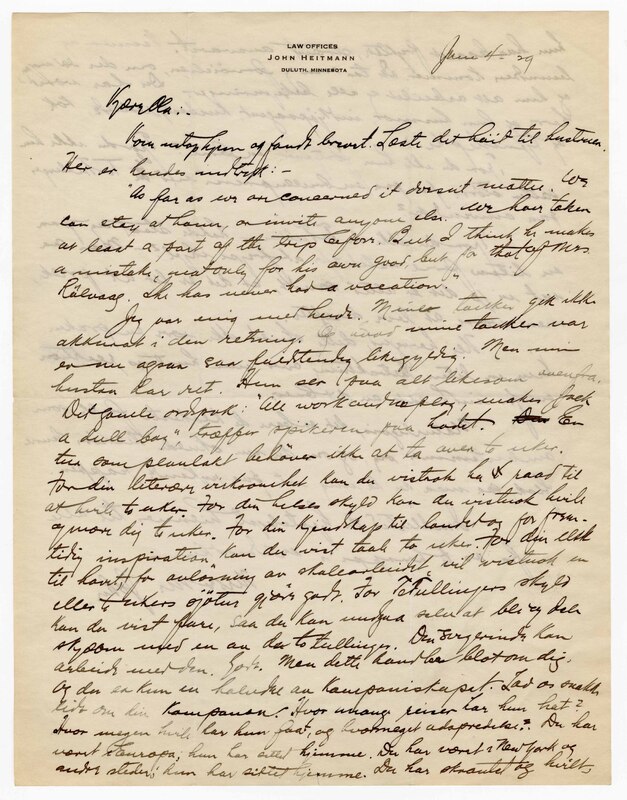 LAW OFFICES
JOHN HEITMANN
DULUTH, MINNESOTA
June 4 - 29
Kjære Ole:-
Kom netop hjem og fandt brevet. Læste det höit til hustruen.
Her er hendes indtryk: -
"As far as we are concerned it doesnt matter. We
can stay at home, or invite anyone else. We have taken
at least a part of the trip before. But I think he makes
a mistake, not only for his own good but for that of Mrs
Rölvaag. She has never had a vacation."
Jeg var enig med hende. Mine tanker gik ikke
akkurat i den retning. mine tanker var
er nu ogsaa saa fuldstendig ligegyldig. Men min
hustru har ret. Hun ser paa alt likesom ovenfra.
Det gamle ordsprok: "All work and no play, makes Jack
a dull boy" træffer spikeren paa hodet. En
tur som planlakt behöver ikke at ta over to uker.
For din literære virksomhet kan du vistnok ha raad til
at hvile to uker. For din helses skyld kan du vistnok hvile
og more dig to uker. For din kjendskap til landet og for frem-
tidig inspiration kan du vist taale to uker. For din elsk
til havet, for avlösning av skolearbeidet vil vistnok en
eller to ukers sjötur gjöre godt. For Tetullingers skyld
kan du vist fare, saa du kan undgaa selv at bli
med en av de to tullinger. Den kan
arbeide med den. Godt. Men dette handler blot om dig.
Og du er kun en halvdel av kompaniskapet. Lad os snakke
litt om din Kompanion. Hvor mange reiser har hun hat?
Hvor megen hvile har hun faat, og hvor meget adspredelse? Du har
været i Europa; hun har sittet hjemme. Du har været i New York og
andre steder; hun har sittet hjemme. Du har og hvilt